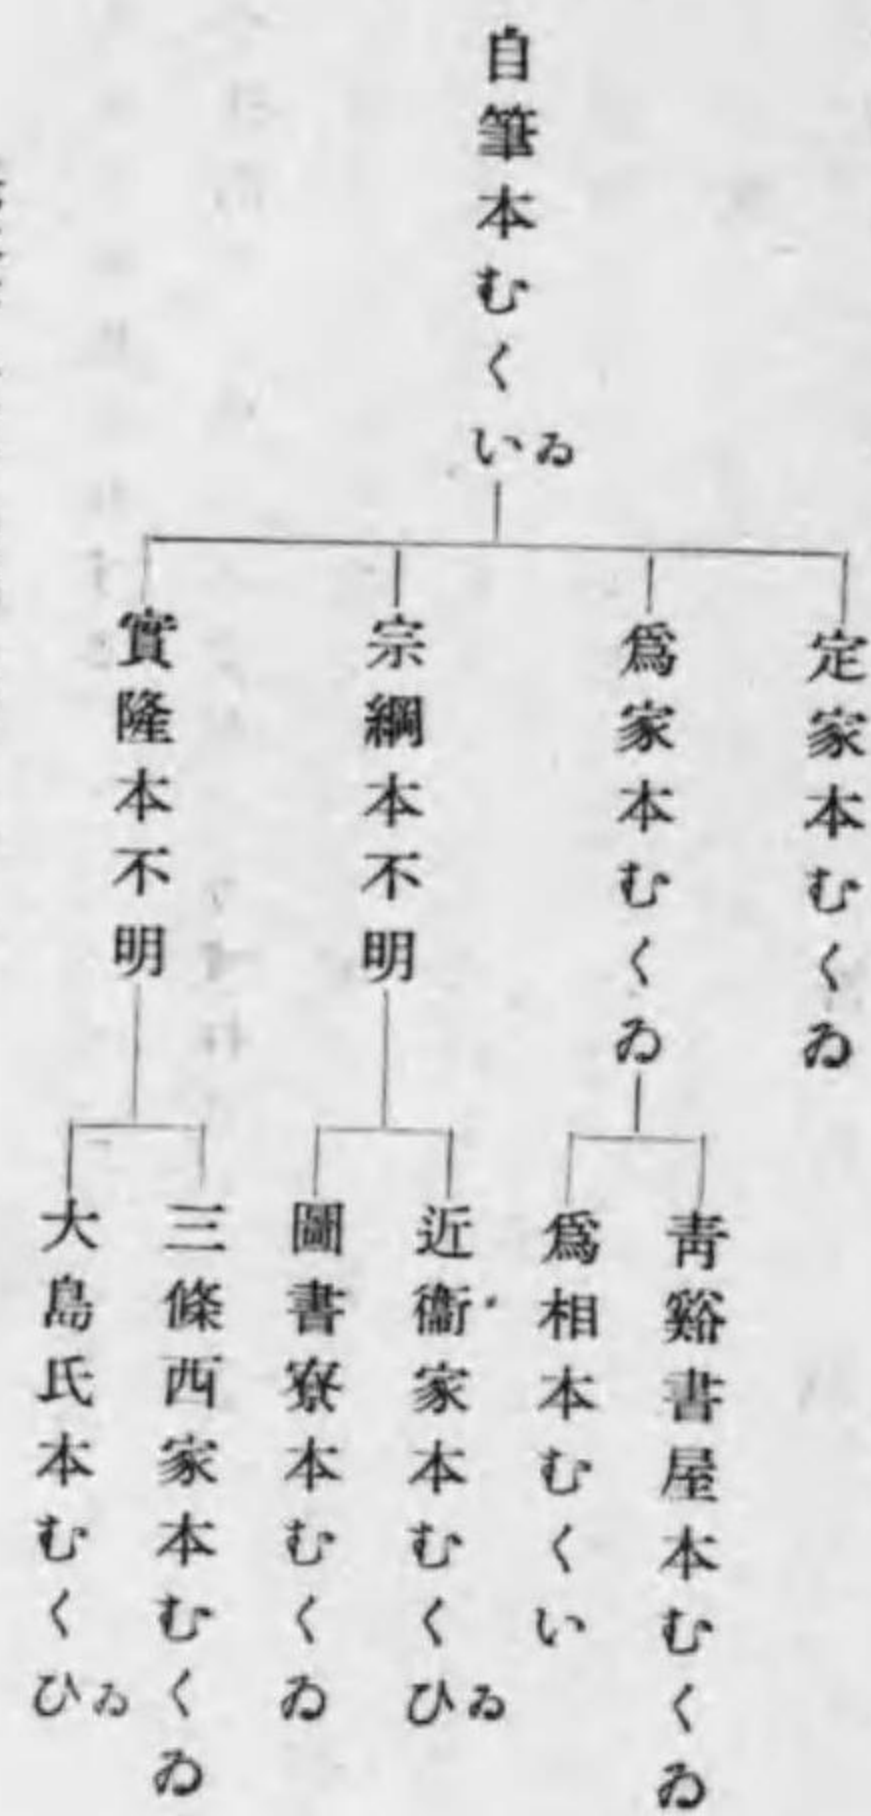 自筆本むくいゐ
定家本むくゐ
爲家本むくゐ
宗綱本不明
實隆本不明
靑谿書屋本むくゐ
爲相本むくい
近衞家本むくひゐ
圖書寮本むくゐ
三條西家本むくゐ
大島氏本むくひゐ